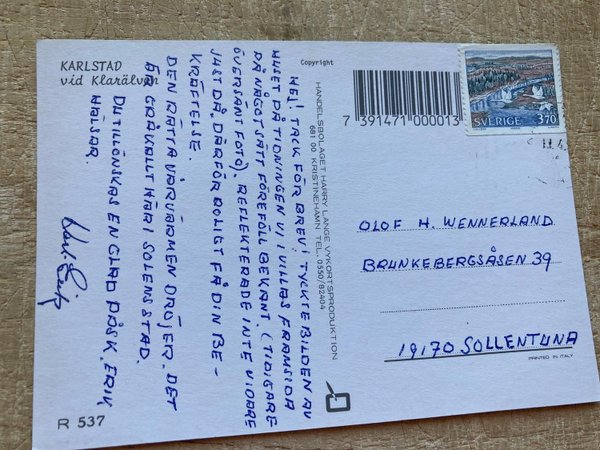 KARLSTAD
vid Klarälven
HEJ! TACK FÖR BREV! TYCKTE BILDEN AV
HUSET PÅ TIDNINGEN VI I VILLAS FRAMSIDA
PÅ NÅGOT SÄTT FÖREFÖLL BEKANT. (TIDIGARE
ÖVERSÄNT FOTO). REFLEKTERADE INTE VIDARE
JUST DÅ. DÄRFÖR ROLIGT FÅ DIN BE-
KRÄFTELSE.
DEN RÄTTA VÅRVÄRMEN DRÖJER. DET
ÄR GRÅKALLT HÄR I SOLENS STAD.
DU TILLÖNSKAS EN GLAD PÅSK. ERIK
HÄLSAR.
R 537
Copyright
HANDELSBOLAGET HARRY LANGE VYKORTSPRODUKTION
681 00 KRISTINEHAMN TEL. 0550/82404
7 391471 000013
SVERIGE 3.70
OLOF H. WENNERLAND
BRUNKEBERGSÅSEN 39
19170 SOLLENTUNA
PRINTED IN ITALY